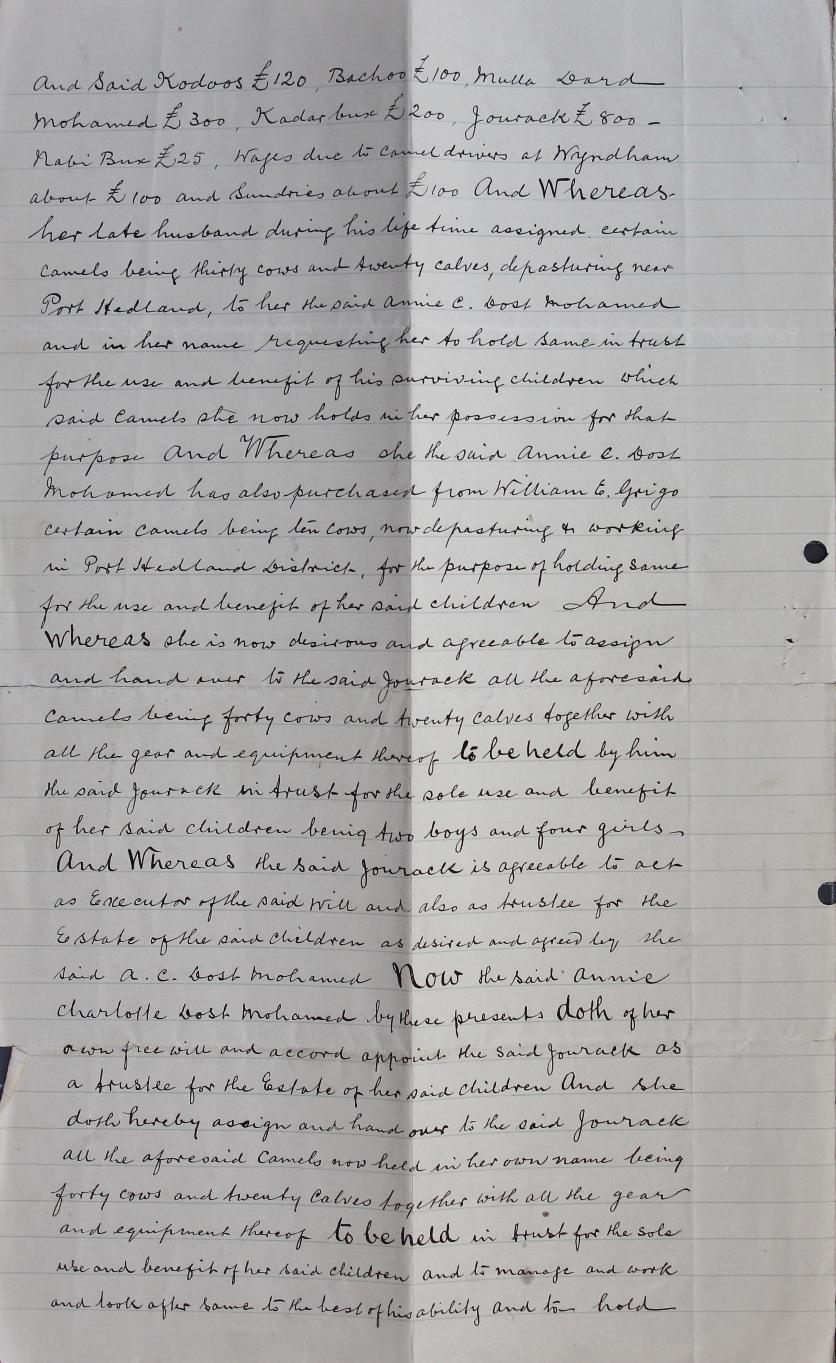 And Said Kodoos £120, Bachoo £100, Mulla Dard
Mohamed £300, Kadarbux £200, Jourack £800 –
Nabi Bux £25, Wages due to camel drivers at Wyndham
about £100 and Sundries about £100 And Whereas
her late husband during his life time assigned certain
camels being thirty cows and twenty calves, depasturing near
Port Hedland, to her the said Annie C. Dost Mohamed
and in her name requesting her to hold same in trust
for the use and benefit of his surviving children which
said camels she now holds in her possession for that
purpose And Whereas she the said Annie C. Dost
Mohamed has also purchased from William E. Grigo
certain camels being ten cows, now depasturing & working
in Port Hedland District, for the purpose of holding same
for the use and benefit of her said children And
Whereas she is now desirous and agreeable to assign
and hand over to the said Jourack all the aforesaid
camels being forty cows and twenty calves together with
all the gear and equipment thereof to be held by him
the said Jourack in trust for the sole use and benefit
of her said children being two boys and four girls –
And Whereas the said Jourack is agreeable to act
as Executor of the said Will and also as trustee for the
Estate of the said children as desired and agreed by the
said A. C. Dost Mohamed Now the said Annie
Charlotte Dost Mohamed by these presents doth of her
own free will and accord appoint the said Jourack as
a trustee for the Estate of her said children And she
doth hereby assign and hand over to the said Jourack
all the aforesaid camels now held in her own name being
forty cows and twenty calves together with all the gear
and equipment thereof to be held in trust for the sole
use and benefit of her said children and to manage and work
and look after same to the best of his ability and to hold